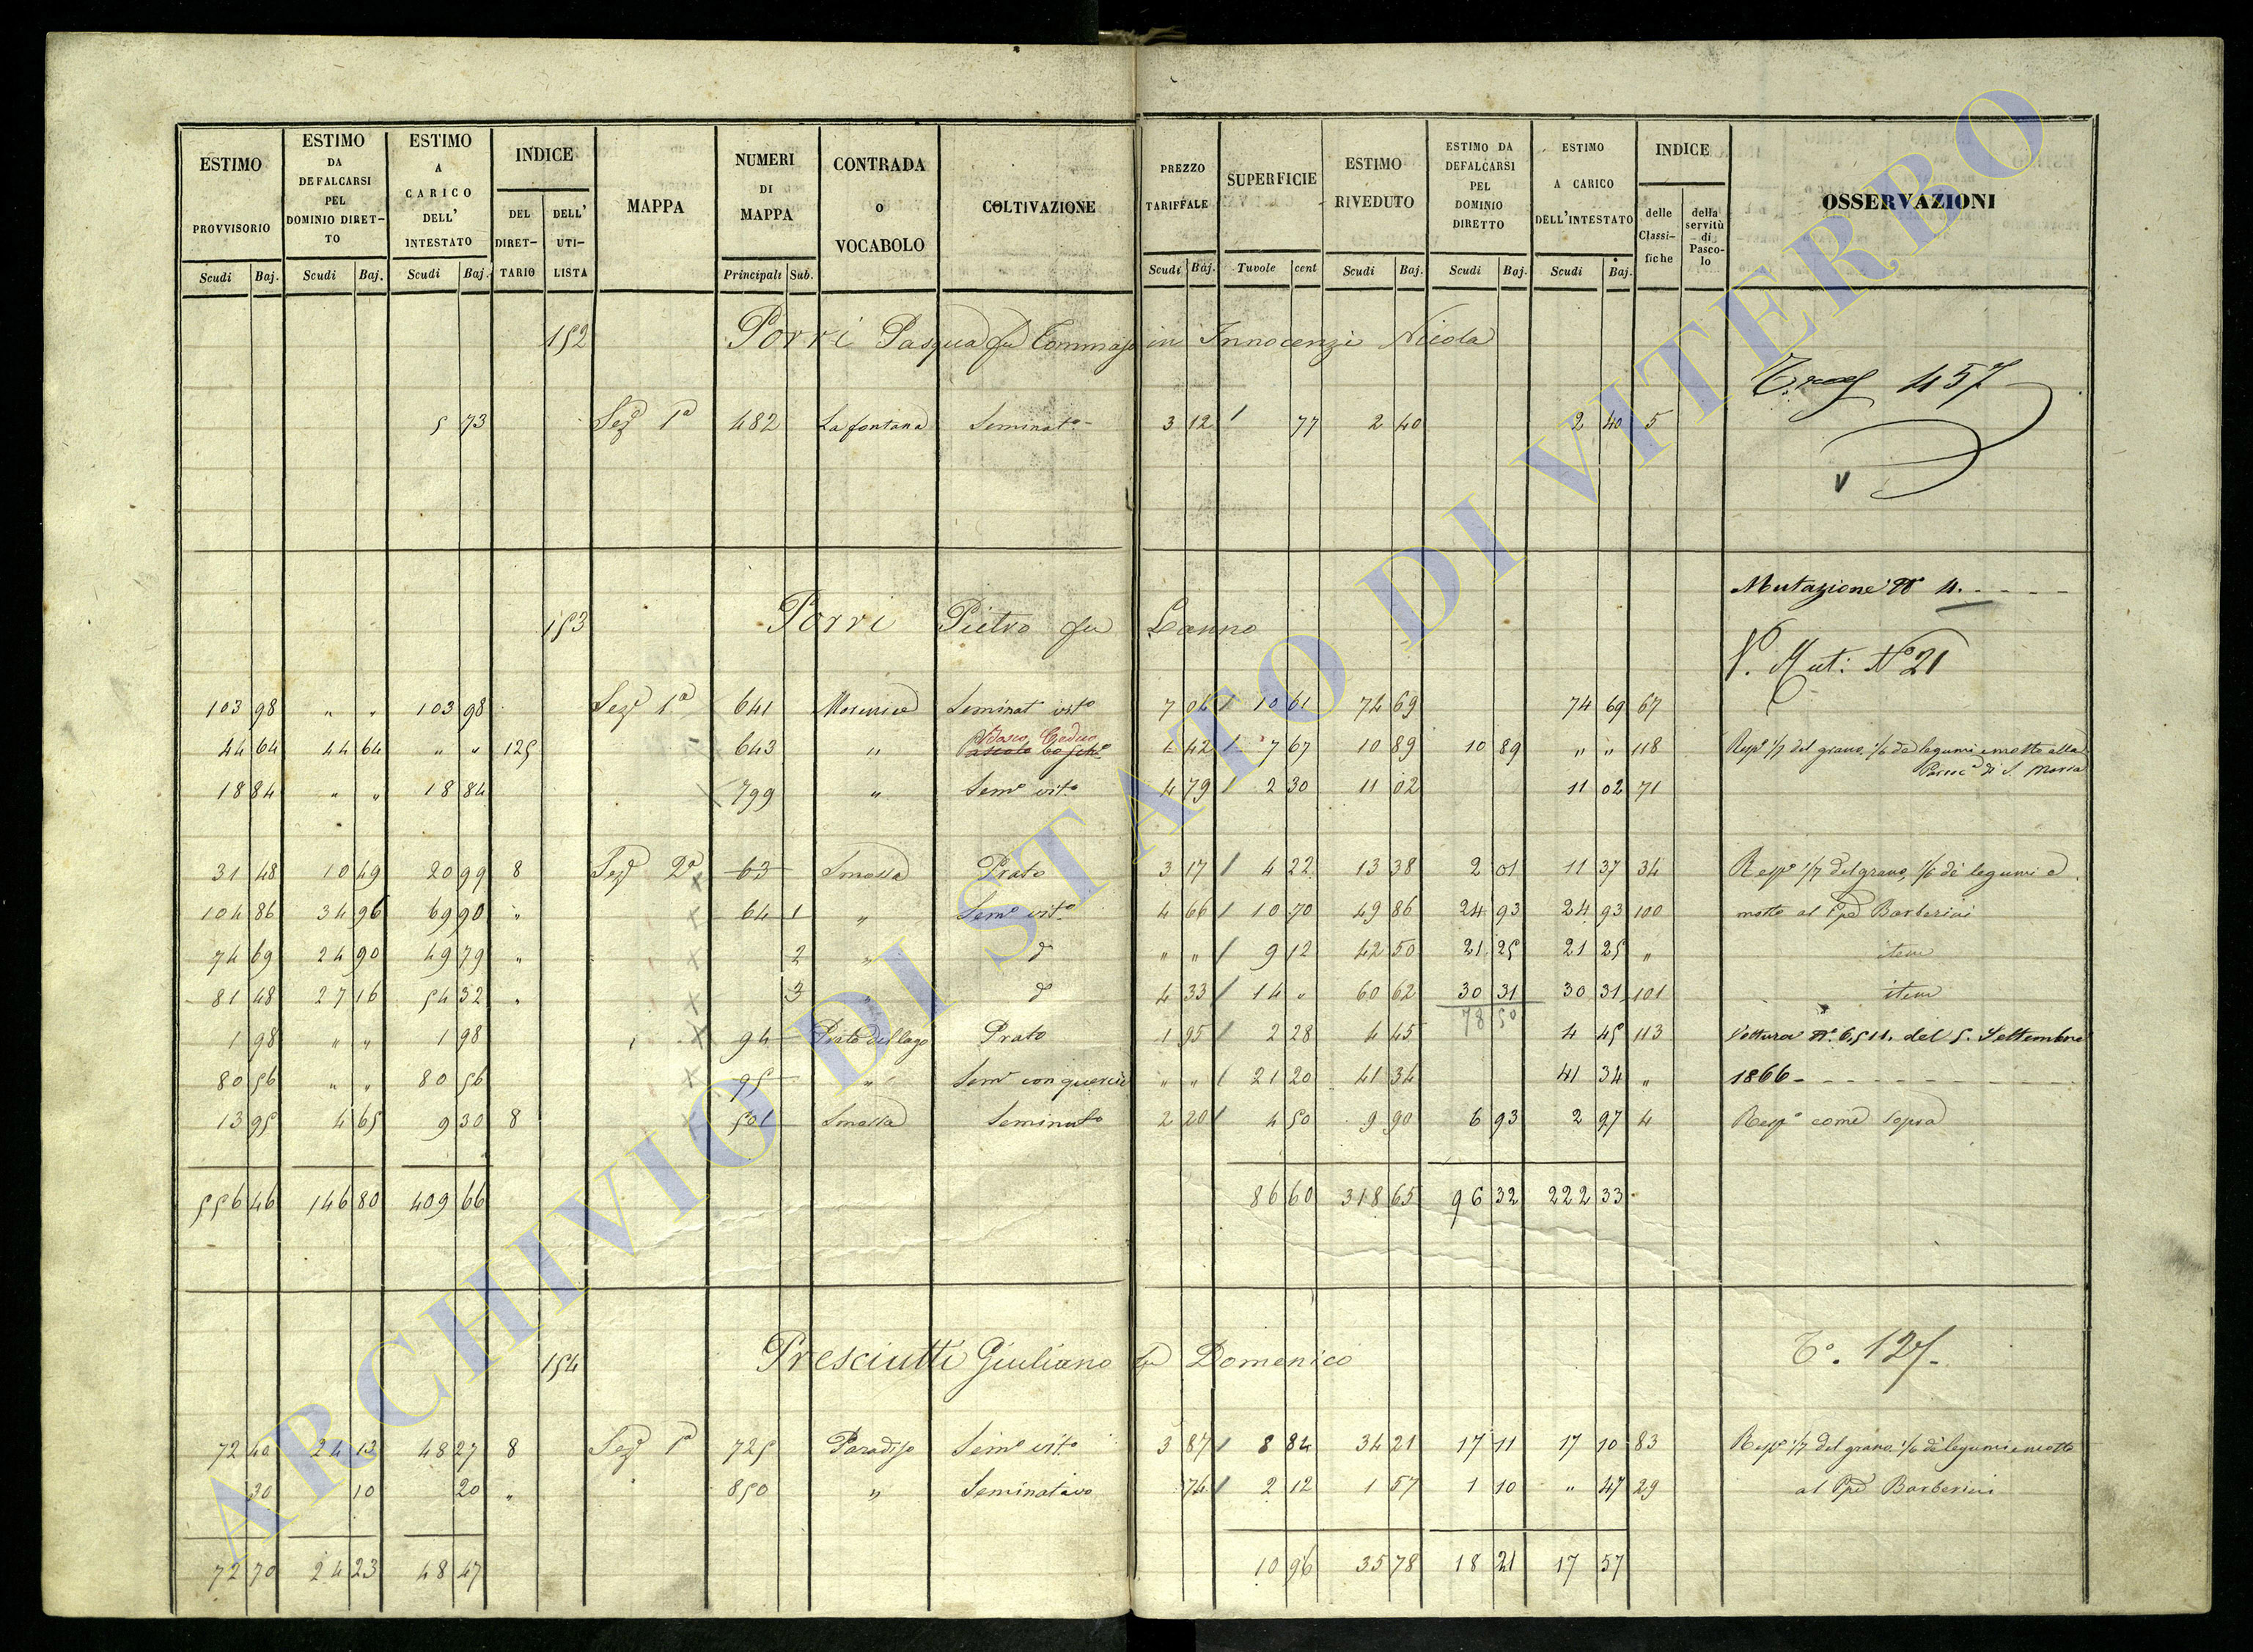 ESTIMO PROVVISORIO Scudi Baj.
ESTIMO DA DEFALCARSI PEL DOMINIO DIRET-TO Scudi Baj.
ESTIMO A CARICO DELL' INTESTATO Scudi Baj.
INDICE DEL DIRET-TARIO DELL' UTI-LISTA
MAPPA
NUMERI DI MAPPA Principali Sub.
CONTRADA O VOCABOLO
COLTIVAZIONE
PREZZO TARIFFALE Scudi Baj.
SUPERFICIE Tavole cent
ESTIMO RIVEDUTO Scudi Baj.
ESTIMO DA DEFALCARSI PEL DOMINIO DIRETTO Scudi Baj.
ESTIMO A CARICO DELL'INTESTATO Scudi Baj.
INDICE delle Classi-fiche della servitù di Pasco-lo
OSSERVAZIONI
152 Porri Pasqua fu Tommaso in Innocenzi Nicola
457
5 73 Sez. 1a 482 La fontana Seminato 3 12 1 77 2 40 2 40 5
V
Mutazione No 4.
153 Porri Pietro fu Lanno
V. Mut: No 21
103 98 " " 103 98 Sez. 1a 641 Seminat vito 7 04 10 61 74 69 74 69 67
44 64 44 64 " " 125 643 " Pascolo 1 42 7 67 10 89 10 89 " " 118 Rispe 1/7 del grano, 1/6 de legumi e mosto alla
Parroc.a di S. Maria
18 84 " " 18 84 799 " Semo vito 4 79 2 30 11 02 11 02 71
31 48 10 49 20 99 8 Sez. 2a 63 Prato 3 17 4 22 13 38 2 01 11 37 34 Rispe 1/7 del grano, 1/6 de legumi e
104 86 34 96 69 90 " 64 1 " Semo vito 4 66 10 70 49 86 24 93 24 93 100 mosto al Barberini
74 69 24 90 49 79 " 2 " do " " 9 12 42 50 21 25 21 25 " item
81 48 27 16 54 32 " 3 " do 4 33 14 " 60 62 30 31 30 31 101 item
78 50
1 98 " " 1 98 94 Prato del lago Prato 1 95 2 28 4 45 4 45 113 Vettura No. 6511. del 5. Settembre
80 56 " " 80 56 95 " Semo con quercie " " 21 20 41 34 41 34 " 1866
13 95 4 65 9 30 8 501 Seminato 2 20 4 50 9 90 6 93 2 97 4 Rispe come sopra
556 46 146 80 409 66 86 60 318 65 96 32 222 33
154 Presciutti Giuliano fu Domenico
To. 127
72 40 24 13 48 27 8 Sez. 1a 725 Paradiso Semo vito 3 87 8 84 34 21 17 11 17 10 83 Rispe 1/7 del grano 1/6 de legumi e mosto
30 10 20 " 850 " Seminativo 74 2 12 1 57 1 10 " 47 29 al Barberini
72 70 24 23 48 47 10 96 35 78 18 21 17 57
ARCHIVIO DI STATO DI VITERBO